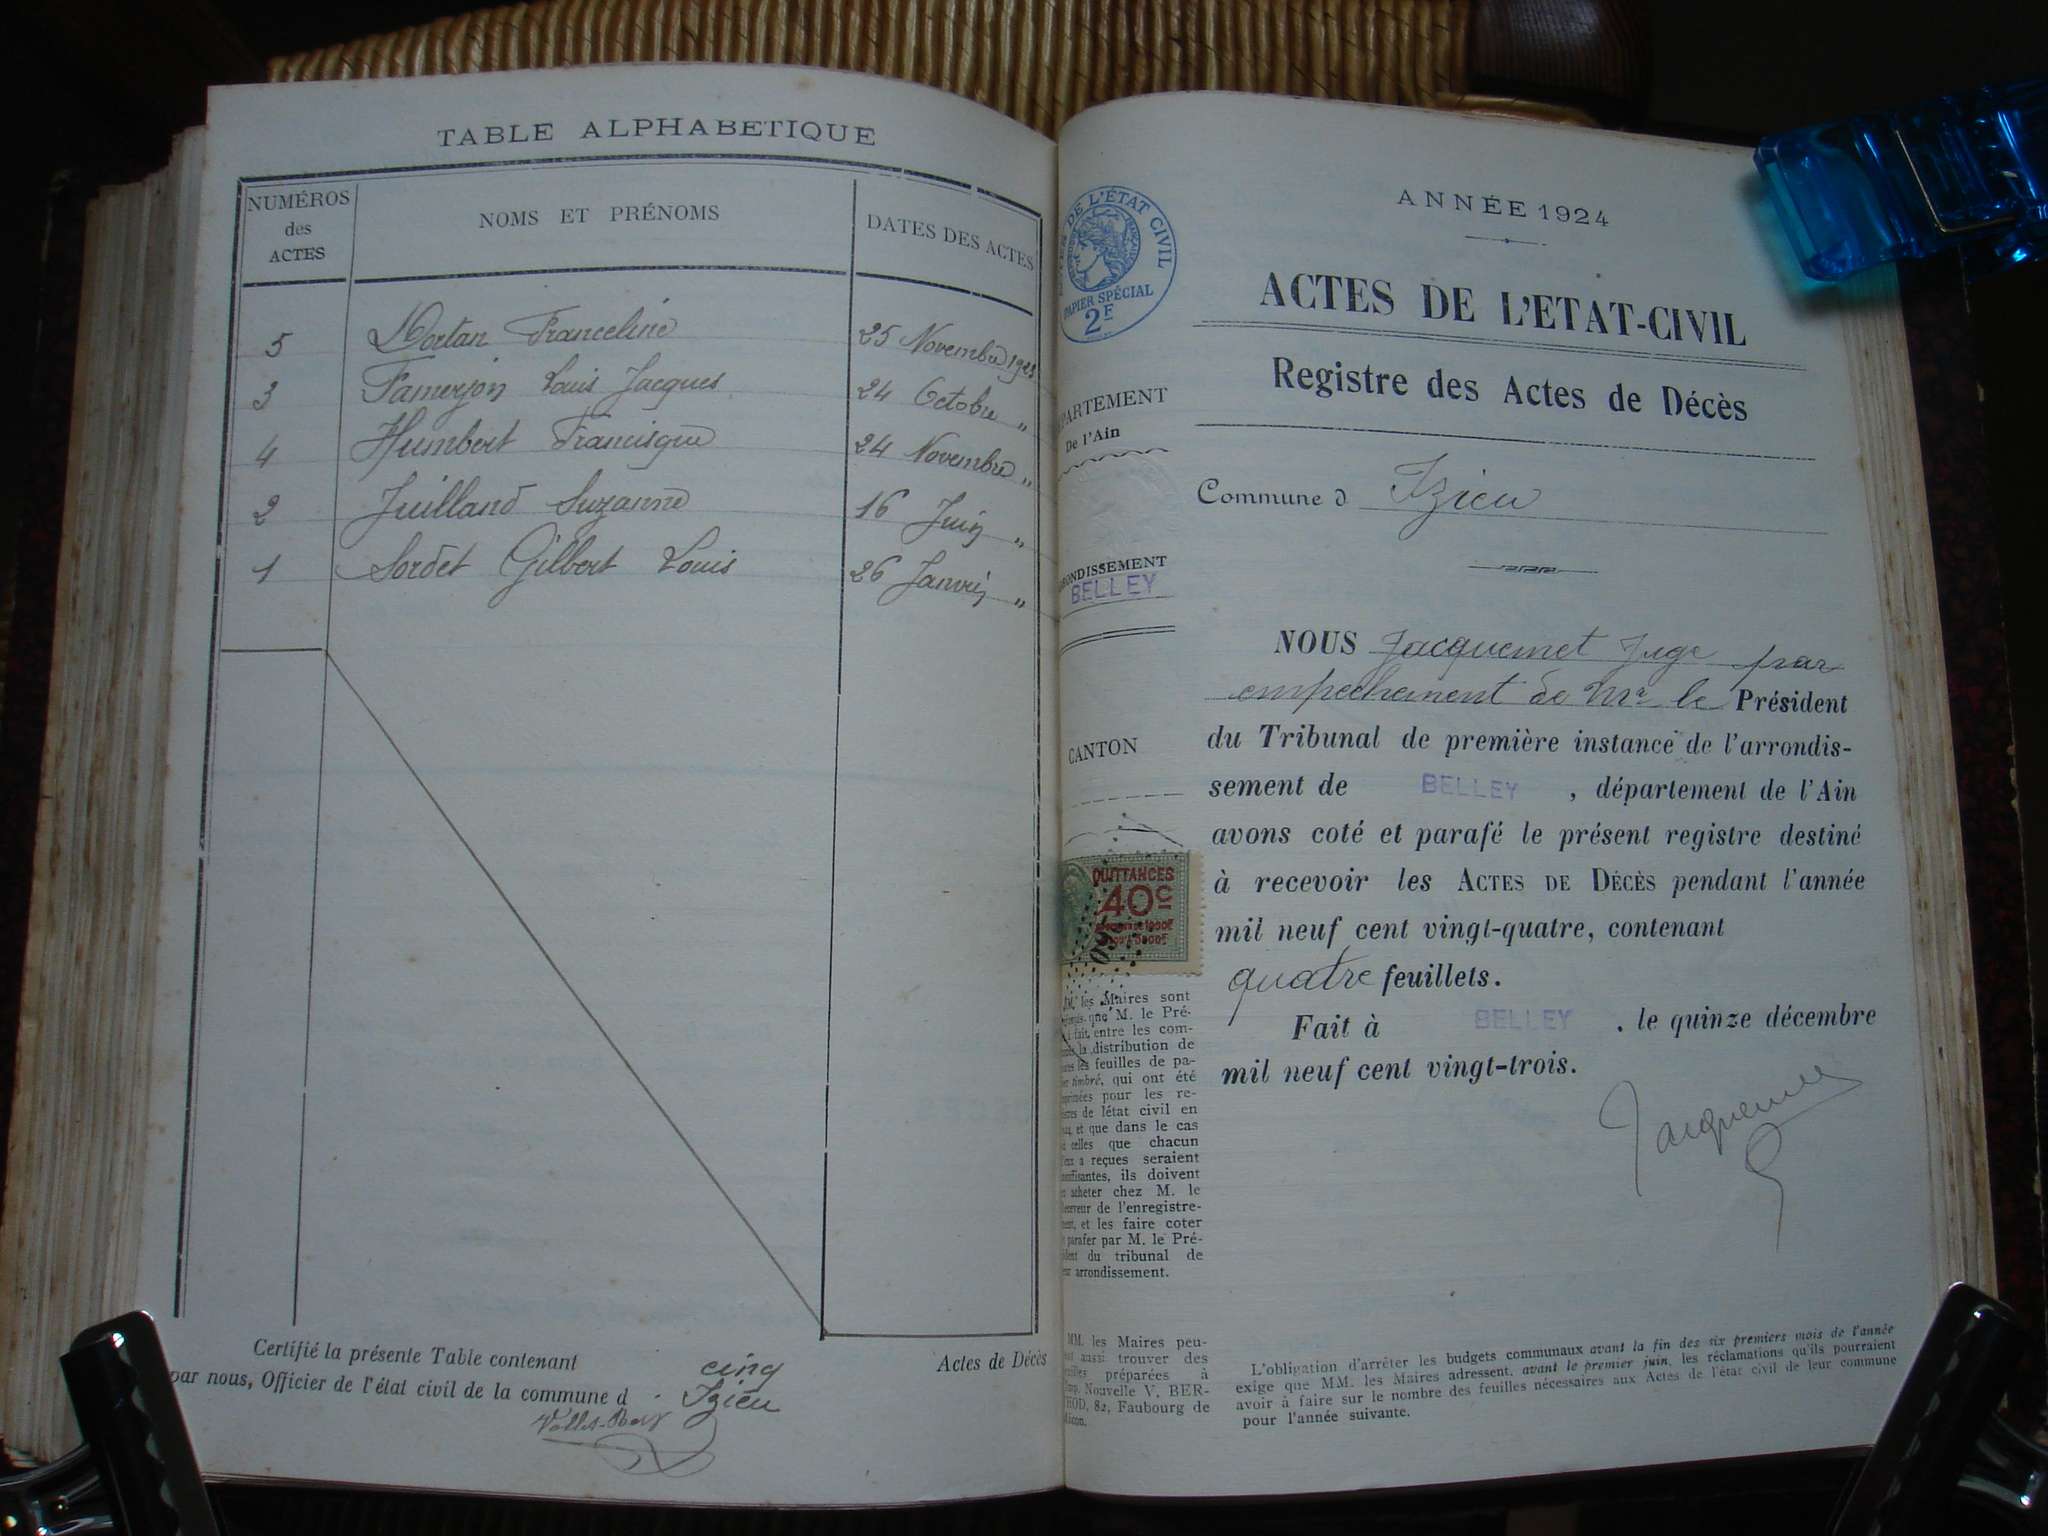 TABLE ALPHABETIQUE
NUMÉROS des ACTES
NOMS ET PRÉNOMS
DATES DES ACTES
5 Dortan Franceline 25 Novembre 1923
3 Famerjon Louis Jacques 24 Octobre "
4 Humbert Francisque 24 Novembre "
2 Juilland Suzanne 16 Juin "
1 Sordet Gilbert Louis 26 Janvier "
Certifié la présente Table contenant cinq Actes de Décès
par nous, Officier de l'état civil de la commune d Izieu
DE L'ÉTAT CIVIL
PAPIER SPÉCIAL
2F
De l'Ain
BELLEY
CANTON
QUITTANCES
40c
les Maires sont
que M. le Pré-
fait entre les com-
la distribution de
les feuilles de pa-
timbré, qui ont été
pour les re-
de l'état civil en
et que dans le cas
celles que chacun
a reçues seraient
ils doivent
acheter chez M. le
de l'enregistre-
et les faire coter
parafer par M. le Pré-
du tribunal de
arrondissement.
MM. les Maires peu-
aussi trouver des
préparées à
Imp. Nouvelle V. BER-
THOD, 82, Faubourg de
ANNÉE 1924
ACTES DE L'ETAT-CIVIL
Registre des Actes de Décès
Commune d Izieu
NOUS Jacquemet Juge par
empechement de Mr le Président
du Tribunal de première instance de l'arrondis-
sement de BELLEY, département de l'Ain
avons coté et parafé le présent registre destiné
à recevoir les ACTES DE DÉCÈS pendant l'année
mil neuf cent vingt-quatre, contenant
quatre feuillets.
Fait à BELLEY, le quinze décembre
mil neuf cent vingt-trois.
Jacquemet
L'obligation d'arrêter les budgets communaux avant la fin des six premiers mois de l'année
exige que MM. les Maires adressent, avant le premier juin, les réclamations qu'ils pourraient
avoir à faire sur le nombre des feuilles nécessaires aux Actes de l'état civil de leur commune
pour l'année suivante.